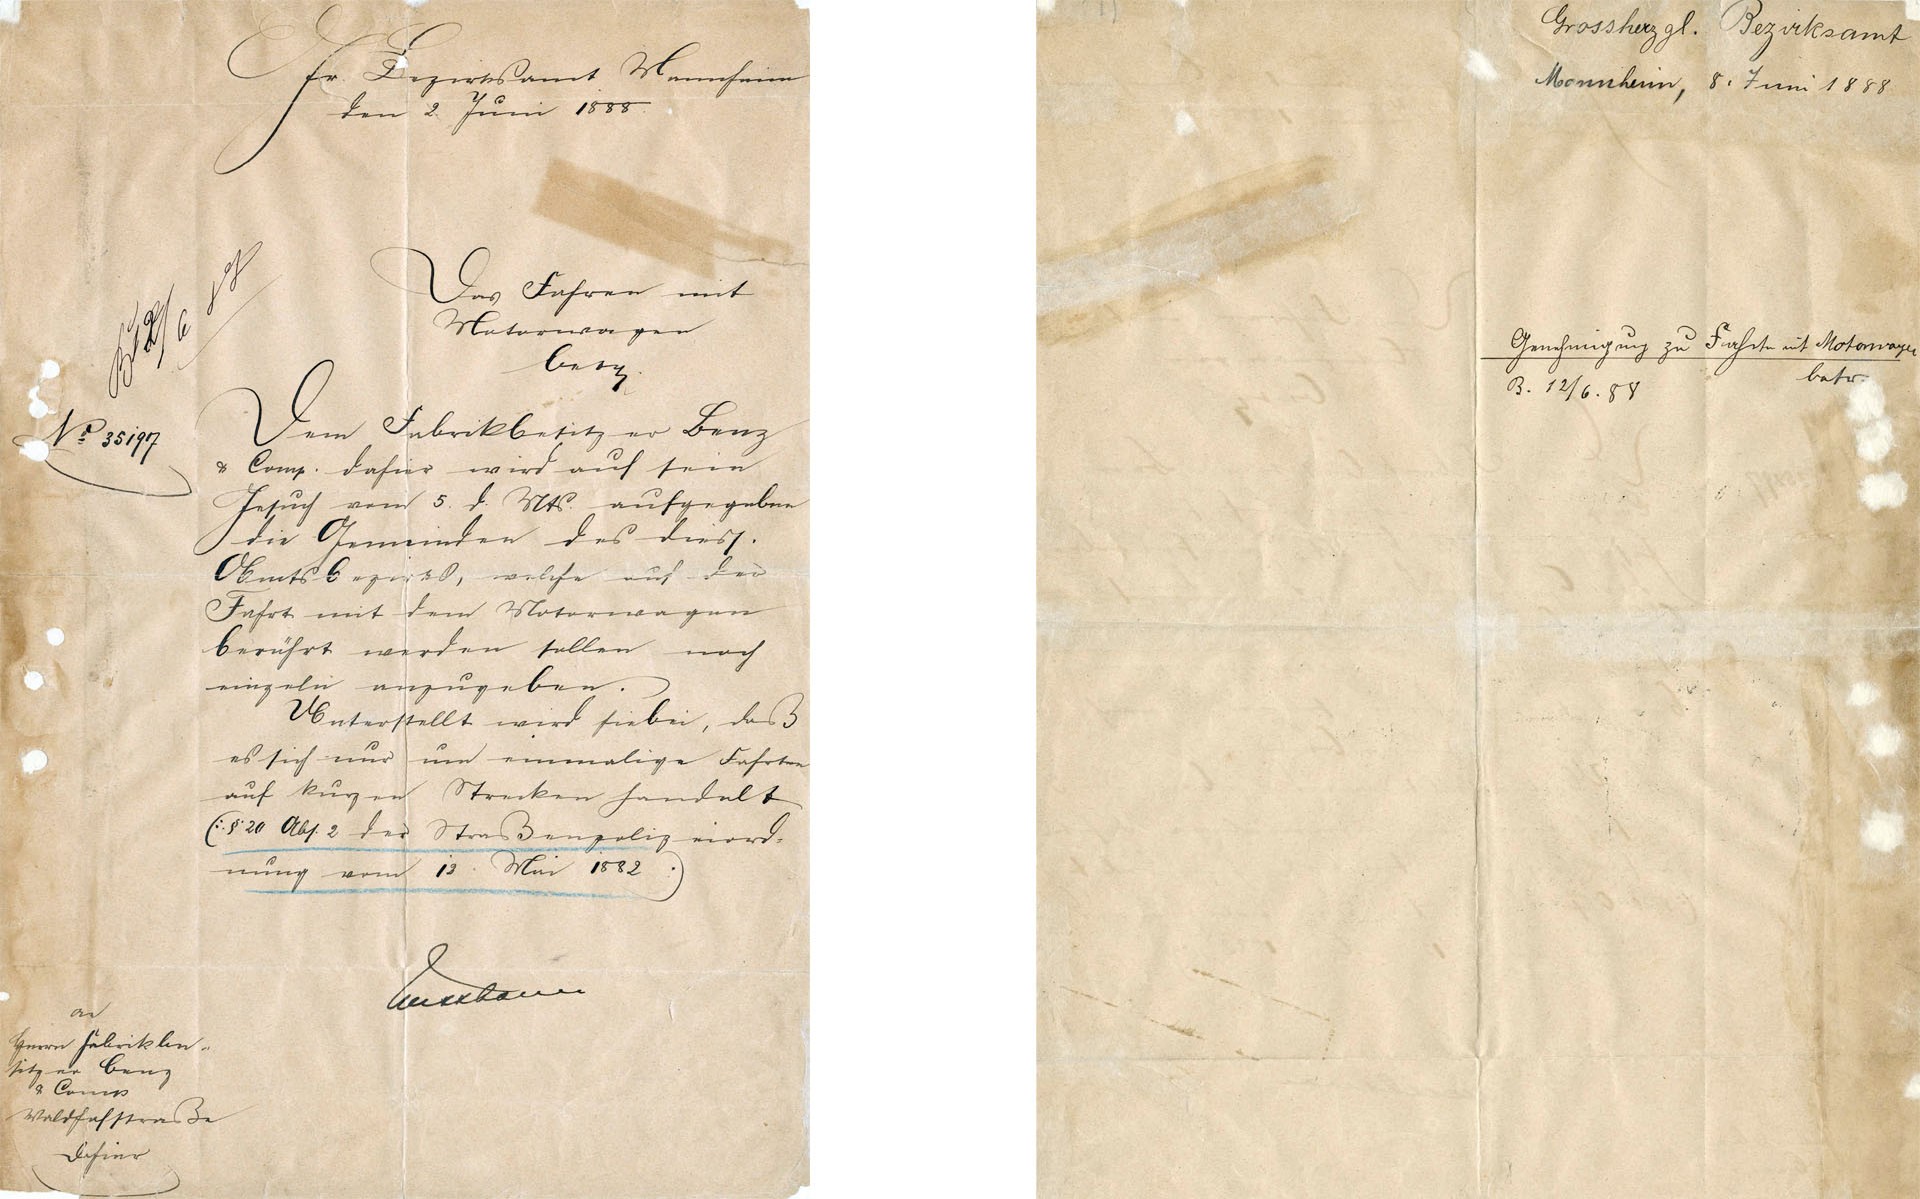 Gr. Bezirksamt Mannheim
den 2. Juni 1888.
Das Fahren mit
Motorwagen
betr.
No 35197
Dem Fabrikbesitzer Benz
& Comp. dahier wird auf sein
Gesuch vom 5. d. Mts. aufgegeben
die Gemeinden des diess.
Amtsbezirks, welche auf der
Fahrt mit dem Motorwagen
berührt werden sollen noch
einzeln anzugeben.
Unterstellt wird hiebei, daß
es sich nur um einmalige Fahrten
auf kurzen Strecken handelt
(: § 20 Abs. 2 der Straßenpolizeiord-
nung vom 12. Mai 1882 :)
an
Herrn Fabrikbe-
sitzer Benz
& Comp
Waldhofstraße
dahier
Grossherzgl. Bezirksamt
Mannheim, 8. Juni 1888
Genehmigung zu Fahrten mit Motorwagen
betr.
B. 12/6. 88